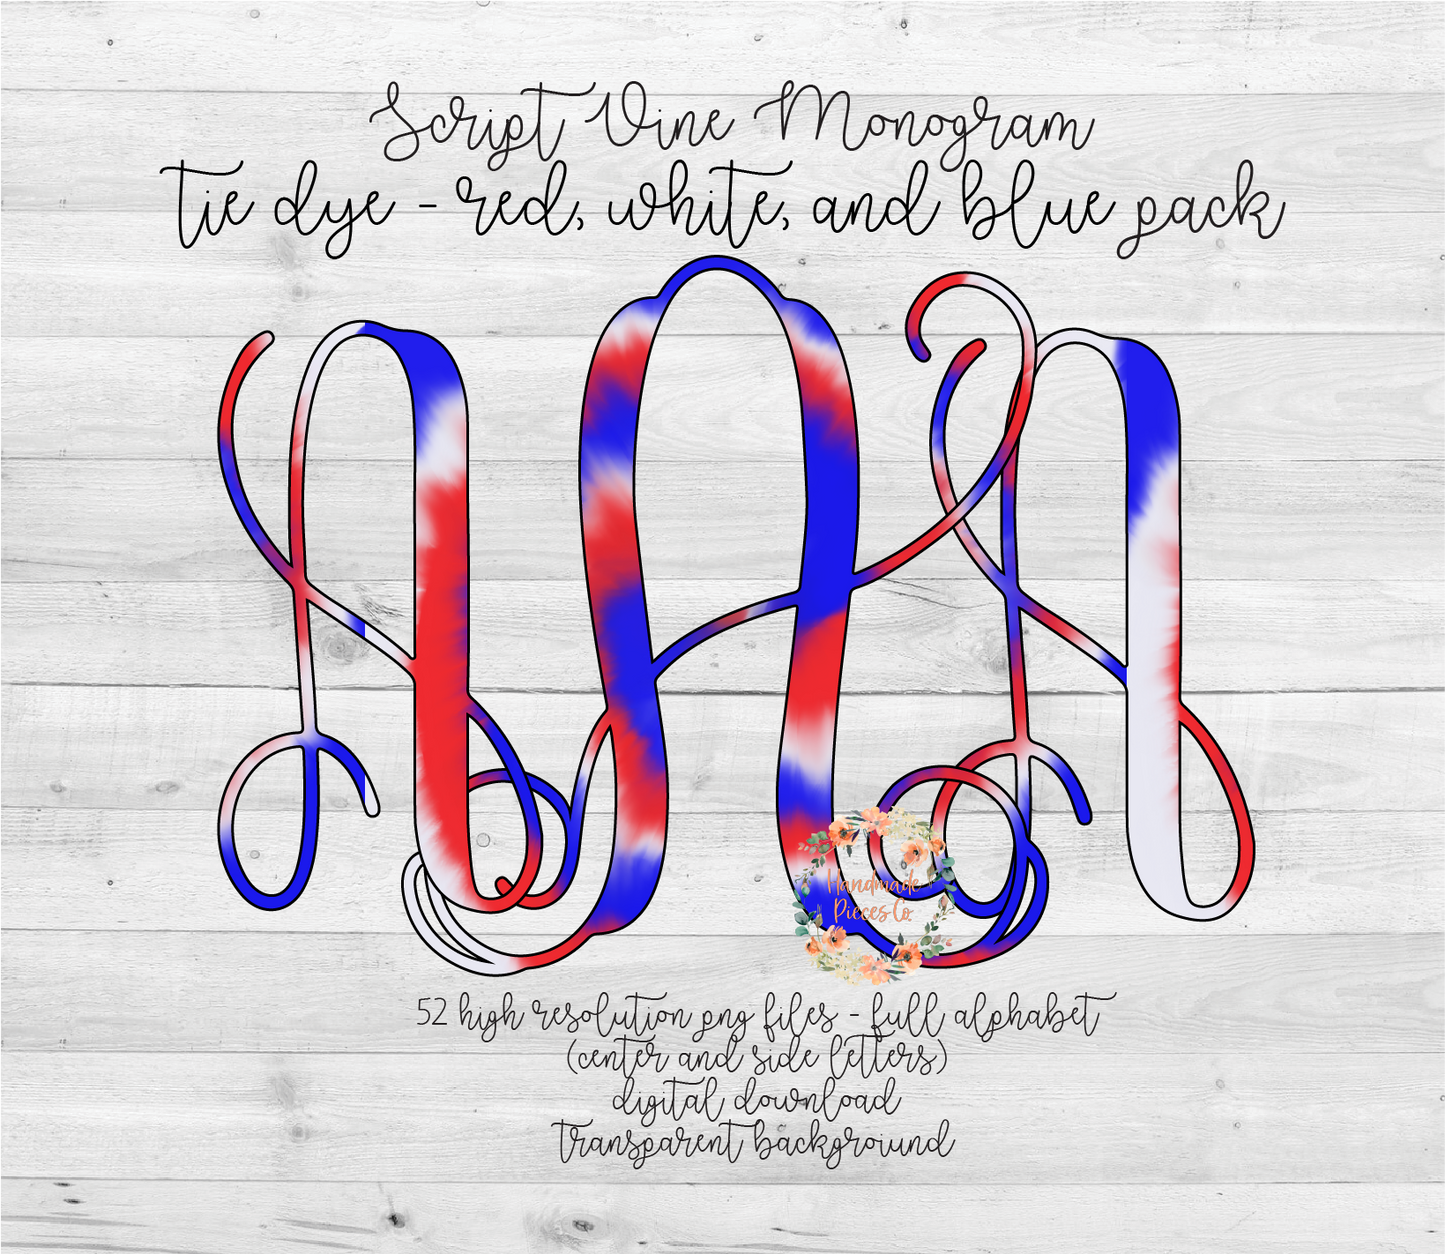 Script Vine Monogram
tie dye - red, white, and blue pack
AAA
Handmade
Pieces Co
52 high resolution png files - full alphabet
(center and side letters)
digital download
transparent background